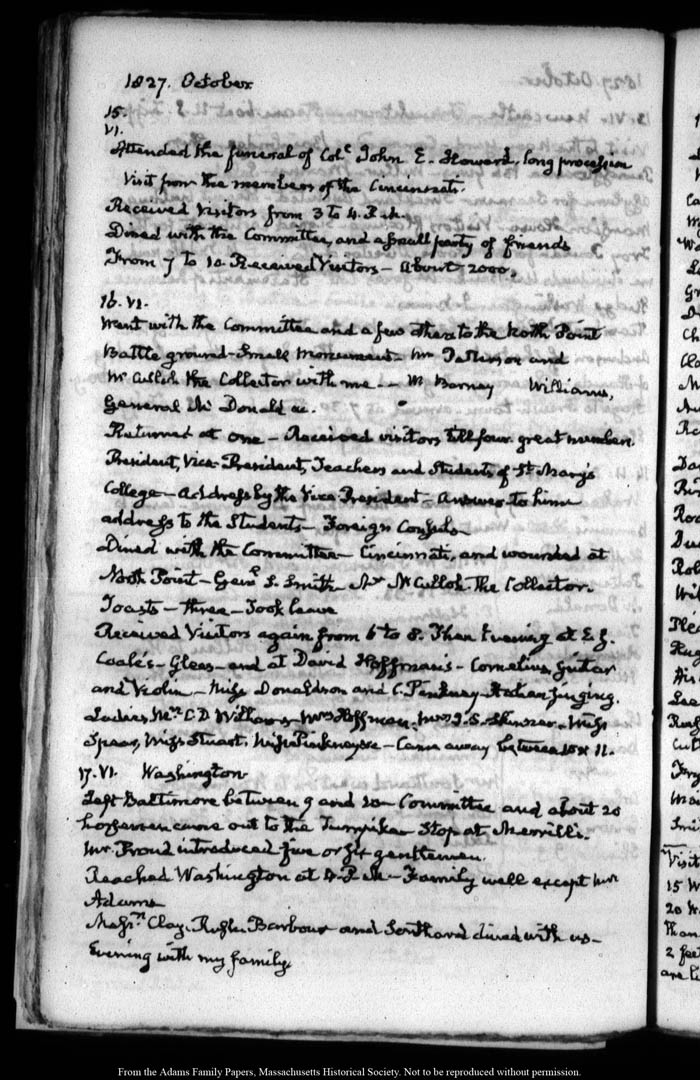 1827. October
15.
VI.
Attended the funeral of Colo John E. Howard, long procession
Visit from the members of the Cincinnati.
Received Visitors from 3 to 4. P.M.
Dined with the Committee, and a small party of friends
From 7 to 10 Received Visitors - About 2000.
16. VI.
Went with the Committee and a few others to the North Point
Battle ground - Small Monument - Mr and
Mc Culloh the Collector with me - Barney Williams,
General Mc Donald &c.
Returned at one - Received visitors till four. great number.
President, Vice-President, Teachers and Students of St. Mary's
College - Address by the Vice President - Answer to him
address to the Students - Foreign Consuls
Dined with the Committee - Cincinnati, and wounded at
North Point - Genl S. Smith Mr McCulloh the Collector.
Toasts - three - Took leave
Received Visitors again from 6 to 8. Then Evening at E. J.
Coale's - Glees - and at David Hoffman's - Cornelius, guitar
and Violin - Miss Donaldson and C. Pinkney Italian singing.
Ladies, Mrs C. D. Williams Mrs Hoffman, Mrs J. S. Skinner. Miss
Spear, Miss Stuart, Miss Pinkney &c - Came away between 10 & 11.
17. VI. Washington
Left Baltimore between 9 and 10 - Committee and about 20
horsemen came out to the Turnpike Stop at Merrill's.
Mr. Proud introduced five or six gentlemen.
Reached Washington at 4. P.M - Family well except Mrs
Adams
Messrs Clay, Rush, Barbour and Southard dined with us -
Evening with my family
From the Adams Family Papers, Massachusetts Historical Society. Not to be reproduced without permission.